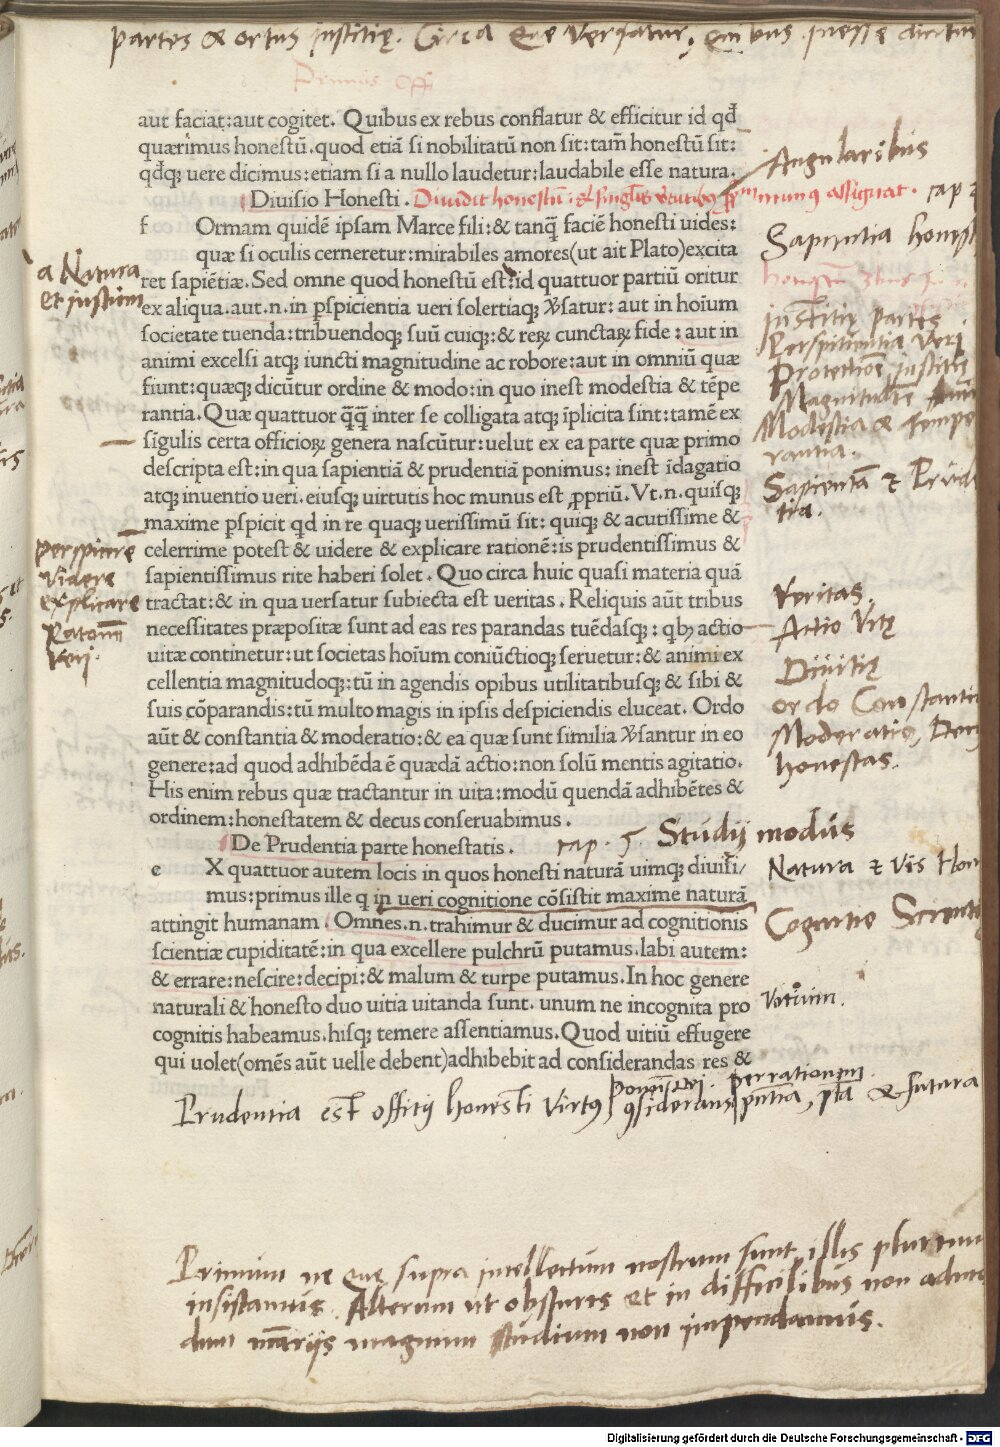 partes & ortus justitię. Circa que versatur, quibus inesse dicitur
Primus Off
aut faciat:aut cogitet. Quibus ex rebus conflatur & efficitur id qđ
quærimus honestū.quod etiā si nobilitatū non sit:tam̄ honestū sit:
qđqꝫ uere dicimus:etiam si a nullo laudetur:laudabile esse natura.
Angularibus
Diuisio Honesti. Diuidit honestum et singulis virtutibus munus assignat. cap 2
f Ormam quidē ipsam Marce fili:& tanq̄ faciē honesti uides:
Sapientia honest
quæ si oculis cerneretur:mirabiles amores(ut ait Plato)excita
a Natura
et justum
ret sapiētiæ. Sed omne quod honestū est:id quattuor partiū oritur
ex aliqua.aut.n.in ꝑspicientia ueri solertiaqꝫ ꝟsatur: aut in hoīum
justitię partes
societate tuenda:tribuendoqꝫ suū cuiqꝫ:& reꝝ cunctaꝝ fide : aut in
Perspicientia Veri
animi excelsi atqꝫ iuncti magnitudine ac robore:aut in omniū quæ
Protectiōe justitię
fiunt:quæqꝫ dicūtur ordine & modo:in quo inest modestia & tēpe
Magnitudīe
rantia. Quæ quattuor q̄q̄ inter se colligata atqꝫ īplicita sint:tamē ex
Modestia & tempe
rantia.
sigulis certa officioꝝ genera nascūtur:uelut ex ea parte quæ primo
descripta est:in qua sapientiā & prudentiā ponimus: inest īdagatio
Sapientā & Prudē
tia.
atqꝫ inuentio ueri.eiusqꝫ uirtutis hoc munus est ꝓpriū. Vt.n.quisqꝫ
maxime ꝑspicit qđ in re quaqꝫ uerissimū sit: quiqꝫ & acutissime &
perspicere
videre
explicare
Rationem
Veri.
celerrime potest & uidere & explicare rationē:is prudentissimus &
sapientissimus rite haberi solet. Quo circa huic quasi materia quā
tractat:& in qua uersatur subiecta est ueritas. Reliquis aūt tribus
Veritas.
necessitates præpositæ sunt ad eas res parandas tuēdasqꝫ: qbꝫ actio
Actio Vitę
uitæ continetur:ut societas hoīum coniūctioqꝫ seruetur:& animi ex
Diuitię
cellentia magnitudoqꝫ:tū in agendis opibus utilitatibusqꝫ & sibi &
suis cōparandis:tū multo magis in ipsis despiciendis eluceat. Ordo
ordo Constantia
aūt & constantia & moderatio:& ea quæ sunt similia ꝟsantur in eo
Moderatio, Decus
genere:ad quod adhibēda ē quædā actio:non solū mentis agitatio.
honestas.
His enim rebus quæ tractantur in uita:modū quendā adhibētes &
ordinem:honestatem & decus conseruabimus.
De Prudentia parte honestatis. cap. 5 Studij modus
e X quattuor autem locis in quos honesti naturā uimqꝫ diuisi/
Natura & vis Hon
mus:primus ille q in ueri cognitione cōsistit maxime naturā
attingit humanam. Omnes.n.trahimur & ducimur ad cognitionis
Cognitio Scientię
scientiæ cupiditatē:in qua excellere pulchrū putamus.labi autem:
& errare:nescire:decipi:& malum & turpe putamus.In hoc genere
naturali & honesto duo uitia uitanda sunt. unum ne incognita pro
Vitium.
cognitis habeamus.hisqꝫ temere assentiamus.Quod uitiū effugere
qui uolet(omēs aūt uelle debent)adhibebit ad considerandas res &
per rationem
Prudentia est offitij honesti virtus considerans & futura
Primum ne quę supra intellectum nostrum sunt, illis plurimum
insistamus. Alterum ut obscuris et in difficilibus non admo
dum magnum studium non impendamus.
Digitalisierung gefördert durch die Deutsche Forschungsgemeinschaft - DFG